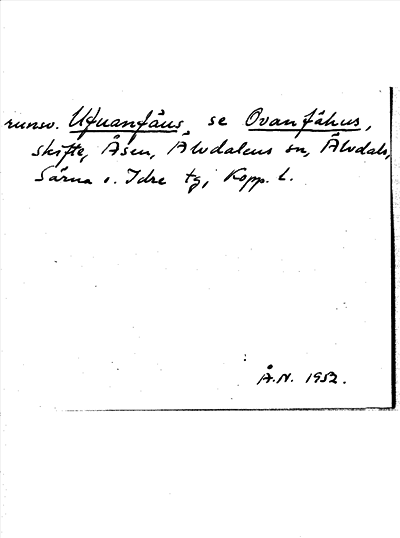 runsv. Ufuanfåus, se Ovanfåhus,
skifte, Åsen, Älvdalens sn, Älvdals,
Särna o. Idre tg, Kopp. l.
Å.N. 1952.